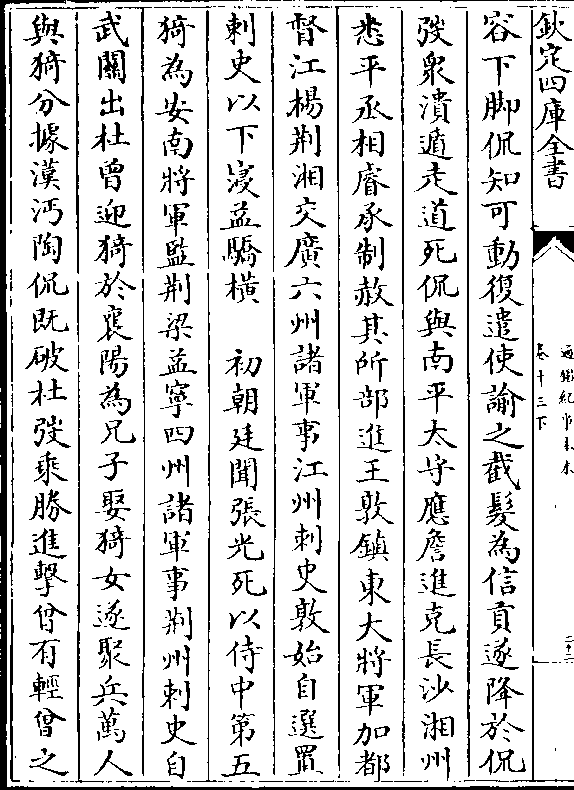 欽定四庫全書
通鑑紀事本末
卷十三下
二十二
容下脚侃知可動復遣使諭之截髮為信貢遂降於侃
弢衆潰遁走道死侃與南平太守應詹進克長沙湘州
悉平丞相睿承制赦其所部進王敦鎮東大將軍加都
督江楊荆湘交廣六州諸軍事江州刺史敦始自選置
刺史以下寖益驕橫　初朝廷聞張光死以侍中第五
猗為安南將軍監荆梁益寧四州諸軍事荆州刺史自
武關出杜曾迎猗於襄陽為兄子娶猗女遂聚兵萬人
與猗分據漢沔陶侃既破杜弢乘勝進擊曾有輕曾之